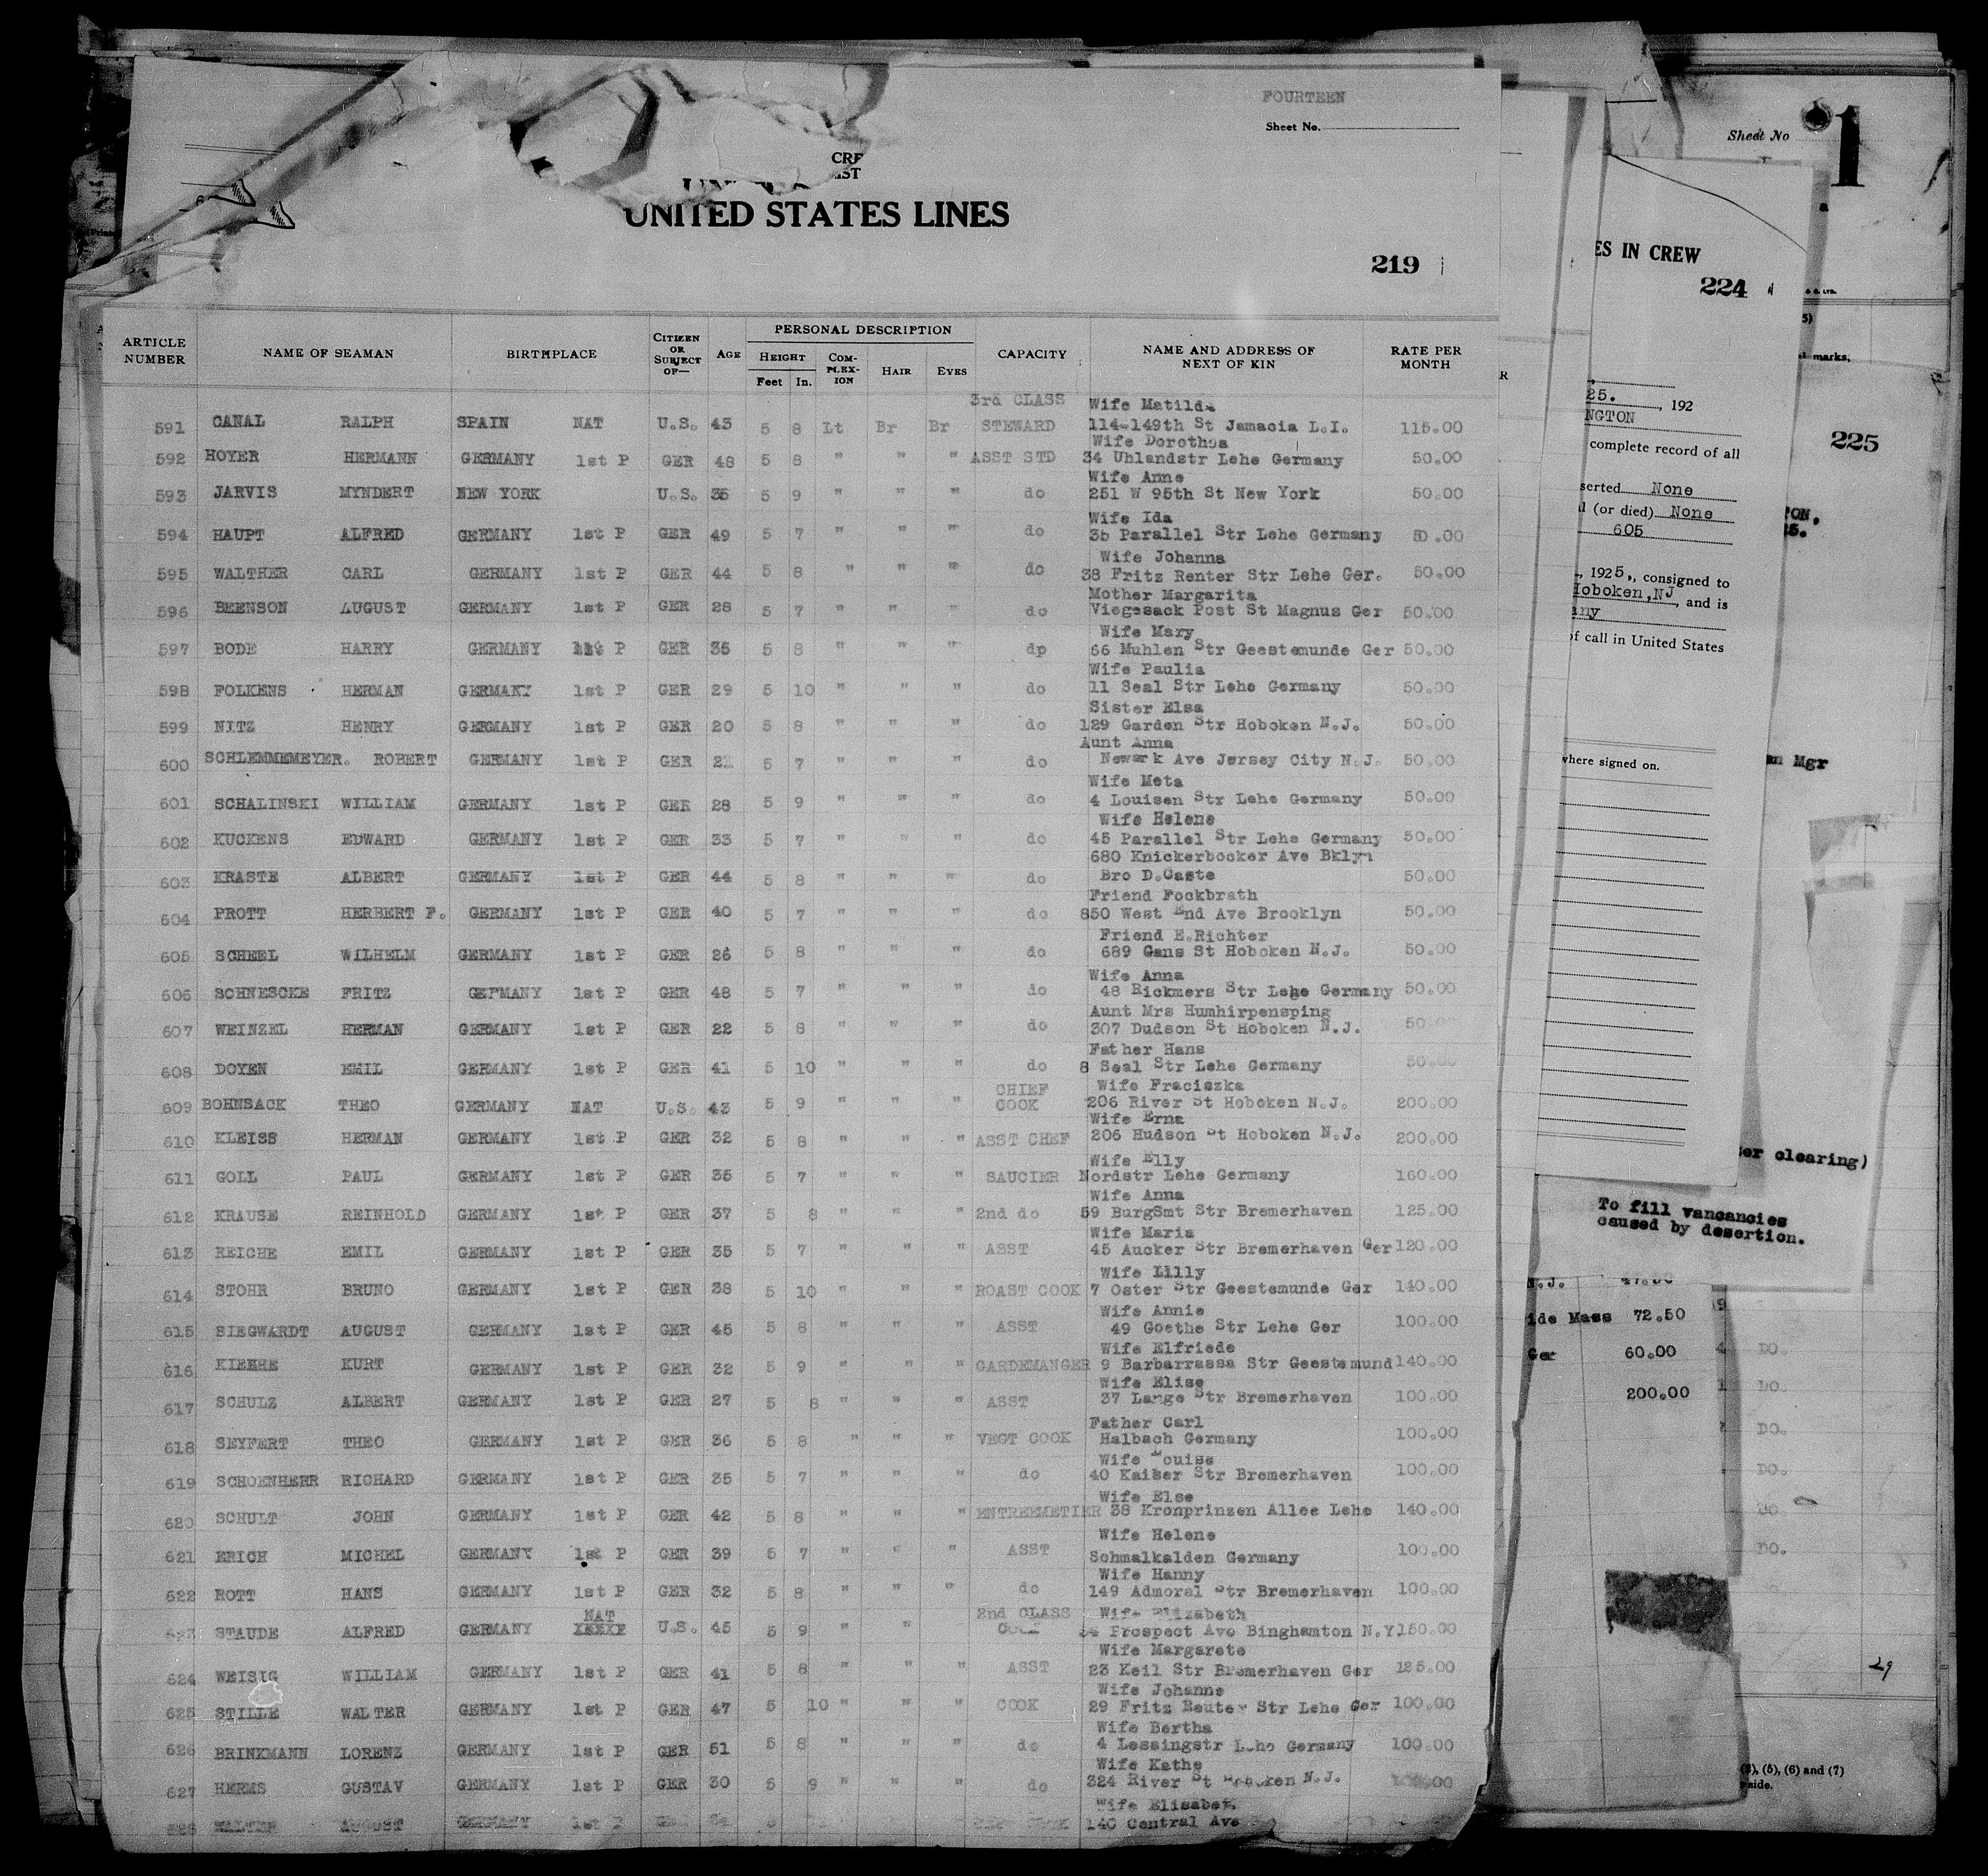 FOURTEEN
Sheet No.
CRE
IST
UNITED STATES LINES
219
ARTICLE NUMBER NAME OF SEAMAN BIRTHPLACE CITIZEN OR SUBJECT OF— AGE PERSONAL DESCRIPTION HEIGHT Feet In. COM-PLEX-ION HAIR EYES CAPACITY NAME AND ADDRESS OF NEXT OF KIN RATE PER MONTH
3rd CLASS Wife Matilda
591 CANAL RALPH SPAIN NAT U.S. 43 5 8 Lt Br Br STEWARD 114-149th St Jamacia L.I. 115.00
Wife Dorothea
592 HOYER HERMANN GERMANY 1st P GER 48 5 8 " " " ASST STD 34 Uhlandstr Lehe Germany 50.00
Wife Anne
593 JARVIS MYNDERT NEW YORK U.S. 35 5 9 " " " do 251 W 95th St New York 50.00
Wife Ida
594 HAUPT ALFRED GERMANY 1st P GER 49 5 7 " " " do 35 Parallel Str Lehe Germany 50.00
Wife Johanna
595 WALTHER CARL GERMANY 1st P GER 44 5 8 " " " do 38 Fritz Renter Str Lehe Ger. 50.00
Mother Margarita
596 BEENSON AUGUST GERMANY 1st P GER 28 5 7 " " " do Viegesack Post St Magnus Ger 50.00
Wife Mary
597 BODE HARRY GERMANY P GER 35 5 8 " " " dp 66 Muhlen Str Geestemunde Ger 50.00
Wife Paulia
598 FOLKENS HERMAN GERMANY 1st P GER 29 5 10 " " " do 11 Seal Str Lehe Germany 50.00
Sister Elsa
599 NITZ HENRY GERMANY 1st P GER 20 5 8 " " " do 129 Garden Str Hoboken N.J. 50.00
Aunt Anna
600 SCHLEMMEMEYER. ROBERT GERMANY 1st P GER 5 7 " " " do Newark Ave Jersey City N.J. 50.00
Wife Meta
601 SCHALINSKI WILLIAM GERMANY 1st P GER 28 5 9 " " " do 4 Louisen Str Lehe Germany 50.00
Wife Helene
602 KUCKENS EDWARD GERMANY 1st P GER 33 5 7 " " " do 45 Parallel Str Lehe Germany 50.00
680 Knickerbocker Ave Bklyn
603 KRASTE ALBERT GERMANY 1st P GER 44 5 8 " " " do Bro D.Caste 50.00
Friend Fockbrath
604 PROTT HERBERT F. GERMANY 1st P GER 40 5 7 " " " do 850 West End Ave Brooklyn 50.00
Friend E.Richter
605 SCHEEL WILHELM GERMANY 1st P GER 26 5 8 " " " do 689 Gans St Hoboken N.J. 50.00
Wife Anna
606 SCHNESCKE FRITZ GERMANY 1st P GER 48 5 7 " " " do 48 Rickmers Str Lehe Germany 50.00
Aunt Mrs Humhirpensping
607 WEINZEL HERMAN GERMANY 1st P GER 22 5 8 " " " do 307 Dudson St Hoboken N.J. 50.00
Father Hans
608 DOYEN EMIL GERMANY 1st P GER 41 5 10 " " " do 8 Seal Str Lehe Germany 50.00
CHIEF Wife Fraciszka
609 BOHNSACK THEO GERMANY NAT U.S. 43 5 9 " " " COOK 206 River St Hoboken N.J. 200.00
Wife Erna
610 KLEISS HERMAN GERMANY 1st P GER 32 5 8 " " " ASST CHEF 206 Hudson St Hoboken N.J. 200.00
Wife Elly
611 GOLL PAUL GERMANY 1st P GER 35 5 7 " " " SAUCIER Nordstr Lehe Germany 160.00
Wife Anna
612 KRAUSE REINHOLD GERMANY 1st P GER 37 5 8 " " " 2nd do 59 BurgSmt Str Bremerhaven 125.00
Wife Maria
613 REICHE EMIL GERMANY 1st P GER 35 5 7 " " " ASST 45 Aucker Str Bremerhaven Ger 120.00
Wife Lilly
614 STOHR BRUNO GERMANY 1st P GER 38 5 10 " " " ROAST COOK 7 Oster Str Geestemunde Ger 140.00
Wife Annie
615 SIEGWARDT AUGUST GERMANY 1st P GER 45 5 8 " " " ASST 49 Goethe Str Lehe Ger 100.00
Wife Elfriede
616 KIEEHE KURT GERMANY 1st P GER 32 5 9 " " " GARDEMANGER 9 Barbarrassa Str Geestemund 140.00
Wife Elise
617 SCHULZ ALBERT GERMANY 1st P GER 27 5 8 " " " ASST 37 Lange Str Bremerhaven 100.00
Father Carl
618 SEYFERT THEO GERMANY 1st P GER 36 5 8 " " " VEGT COOK Halbach Germany 100.00
Wife Louise
619 SCHOENHERR RICHARD GERMANY 1st P GER 35 5 7 " " " do 40 Kaiser Str Bremerhaven 100.00
Wife Else
620 SCHULT JOHN GERMANY 1st P GER 42 5 8 " " " ENTREEMETIER 38 Kronprinzen Allee Lehe 140.00
Wife Helene
621 ERICH MICHEL GERMANY 1st P GER 39 5 7 " " " ASST Schmalkalden Germany 100.00
Wife Hanny
622 ROTT HANS GERMANY 1st P GER 32 5 8 " " " do 149 Admoral Str Bremerhaven 100.00
NAT 2nd CLASS Wife Elizabeth
623 STAUDE ALFRED GERMANY XXXXX U.S. 45 5 9 " " COOK Prospect Ave Binghamton N.Y. 150.00
Wife Margarete
624 WEISIG WILLIAM GERMANY 1st P GER 41 5 8 " " " ASST 23 Keil Str Bremerhaven Ger 125.00
Wife Johanne
625 STILLE WALTER GERMANY 1st P GER 47 5 10 " " " COOK 29 Fritz Reuter Str Lehe Ger 100.00
Wife Bertha
626 BRINKMANN LORENZ GERMANY 1st P GER 51 5 8 " " " do 4 Lessingstr Lehe Germany 100.00
Wife Kathe
627 HERMS GUSTAV GERMANY 1st P GER 30 5 9 " " " do 324 River St Hoboken N.J.
Wife Elisabet
WALTER AUGUST GERMANY 1st P 140 Central Ave
ES IN CREW
224
25. , 192
NGTON
complete record of all
serted None
l (or died) None
605
, 1925., consigned to
Hoboken,NJ, and is
any
of call in United States
where signed on.
Sheet No
1
225
marks,
TON,
an Mgr
ter clearing)
To fill vancancies
caused by desertion.
N.J. 47.50
ide Mass 72.50
Ger 60.00
200.00
DO.
DO.
DO.
DO.
DO.
DO.
29
(3), (5), (6) and (7)
side.